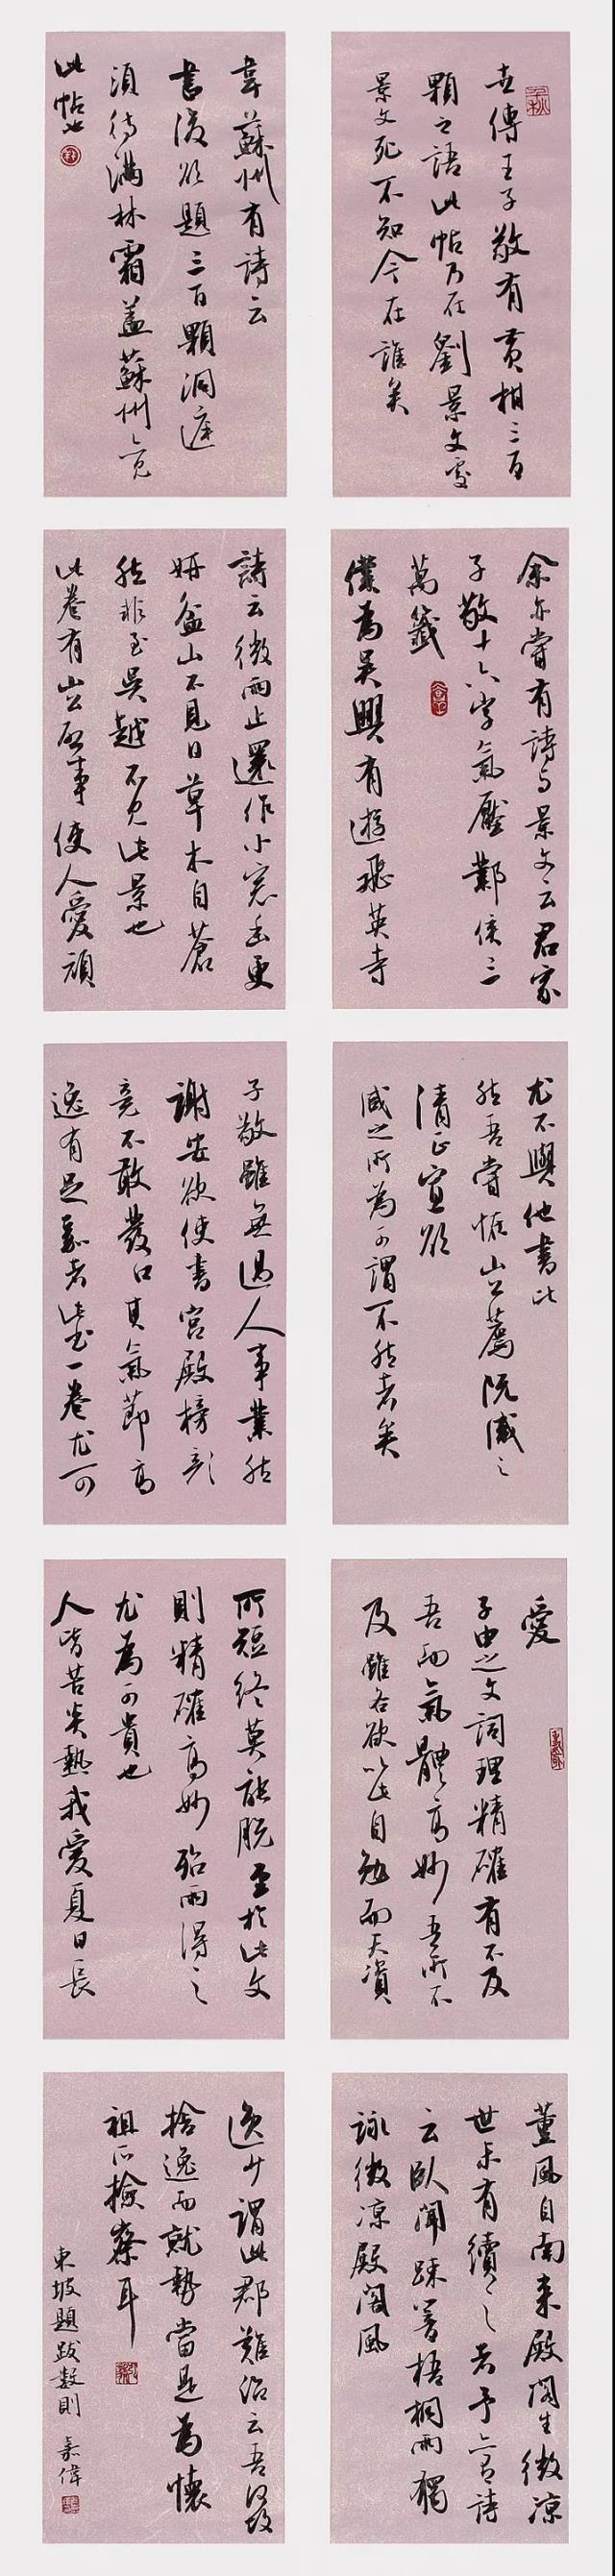 世傳王子敬有黃柑三百
顆之語此帖乃在劉景文處
景文死不知今在誰矣
韋蘇州有詩云
書後欲題三百顆洞庭
須待滿林霜蓋蘇州亦見
此帖也
余亦嘗有詩与景文云君家
子敬十六字氣壓鄴侯三
萬籤
僕為吳興有遊飛英寺
詩云微雨止還作小窓幽更
妍盆山不見日草木自蒼
然非至吳越不見此景也
此卷有山公啟事使人愛頑
尤不與他書比
然吾嘗怪山公薦阮咸之
清正寡欲
咸之所為可謂不然者矣
子敬雖無過人事業然
謝安欲使書宮殿榜
竟不敢發口其氣節高
逸有足嘉者此書一卷尤可
愛
子由之文詞理精確有不及
吾而氣體高妙吾所不
及雖各欲以此自勉而天資
所短終莫能脫至於此文
則精確高妙殆兩得之
尤為可貴也
人皆苦炎熱我愛夏日長
薰風自南來殿閣生微涼
世未有續之者予亦有詩
云臥聞疎響梧桐雨獨
詠微涼殿閣風
逸少謂此郡難治云吾何故
捨逸而就勞當是為懷
祖所檢察耳
東坡題跋數則 嘉偉